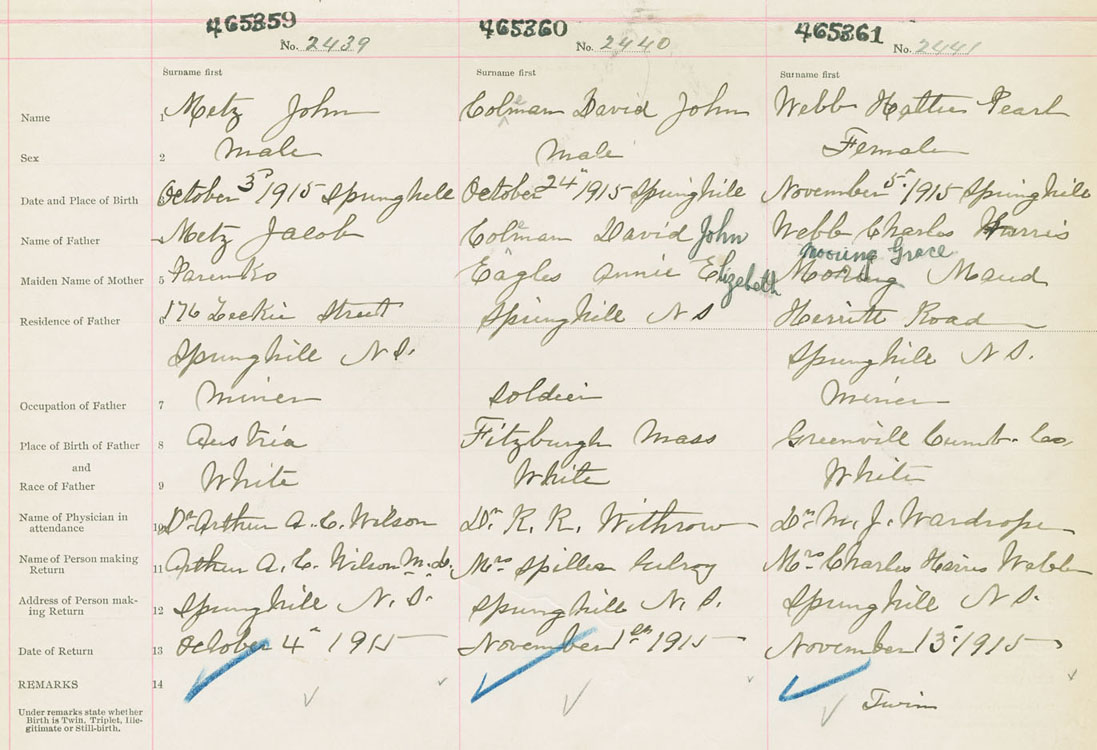 465359 465360 465361
No. 2439 No. 2440 No. 2441
Surname first Surname first Surname first
Name 1 Metz John Coleman David John Webb Hattie Pearl
Sex 2 Male Male Female
Date and Place of Birth October 3rd 1915 Springhill October 24" 1915 Springhill November 5" 1915 Springhill
Name of Father Metz Jacob Coleman David John Webb Charles Harris
Mooring Grace
Maiden Name of Mother 5 Parenko Eagles Annie Elizabeth Mooring Maud
Residence of Father 6 176 Leckie Street Springhill N S Herritt Road
Springhill N.S. Springhill N S.
Occupation of Father 7 Miner Soldier Miner
Place of Birth of Father 8 Austria Fitzburgh Mass Greenvill Cumb. Co
and
Race of Father 9 White White White
Name of Physician in
attendance 10 Dr Arthur A. C. Wilson Dr. R. R. Withrow Dr M. J. Wardrope
Name of Person making
Return 11 Arthur A. C. Wilson M.D. Mrs Spiller Mrs Charles Harris Webb
Address of Person mak-
ing Return 12 Springhill N.S. Springhill N.S. Springhill N S.
Date of Return 13 October 4" 1915 November 1st 1915 November 13" 1915
REMARKS 14
Twin
Under remarks state whether
Birth is Twin, Triplet, Ille-
gitimate or Still-birth.